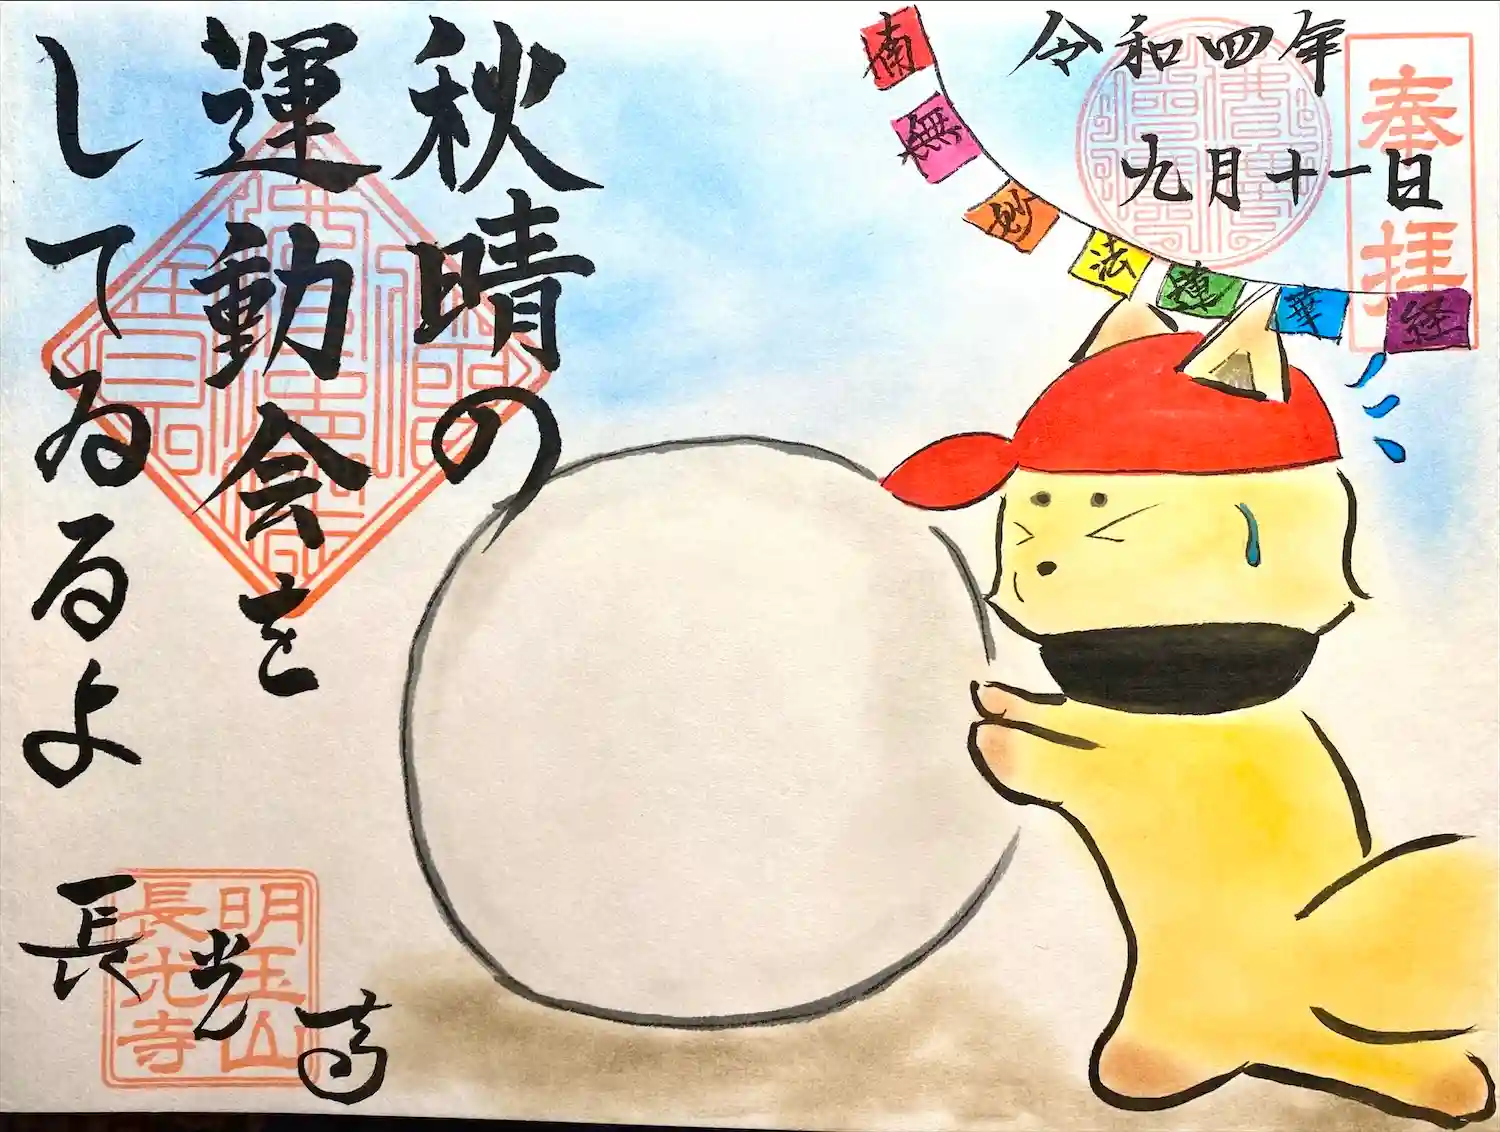 奉拝
令和四年
九月十一日
南無妙法蓮華経
秋晴の
運動会を
してゐるよ
長光寺
明玉山
長光寺